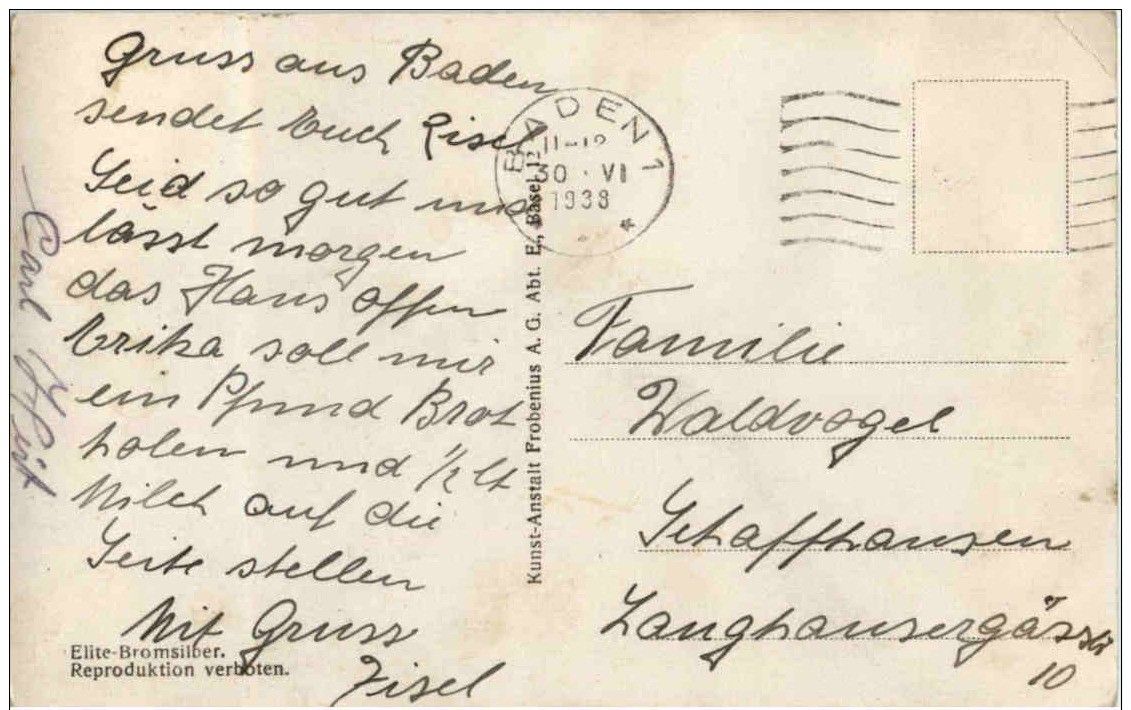 Gruss aus Baden
sendet Euch Lisel
Seid so gut und
lässt morgen
das Haus offen
Erika soll mir
ein Pfund Brot
holen und 1/2 lt
Milch auf die
Seite stellen
Mit Gruss
Lisel
Carl
Elite-Bromsilber.
Reproduktion verboten.
Kunst-Anstalt Frobenius A. G. Abt. E., Basel 12
BADEN 1
11-12
30·VI
1938
*
Familie
Waldvogel
Schaffhausen
Langhausergässli
10